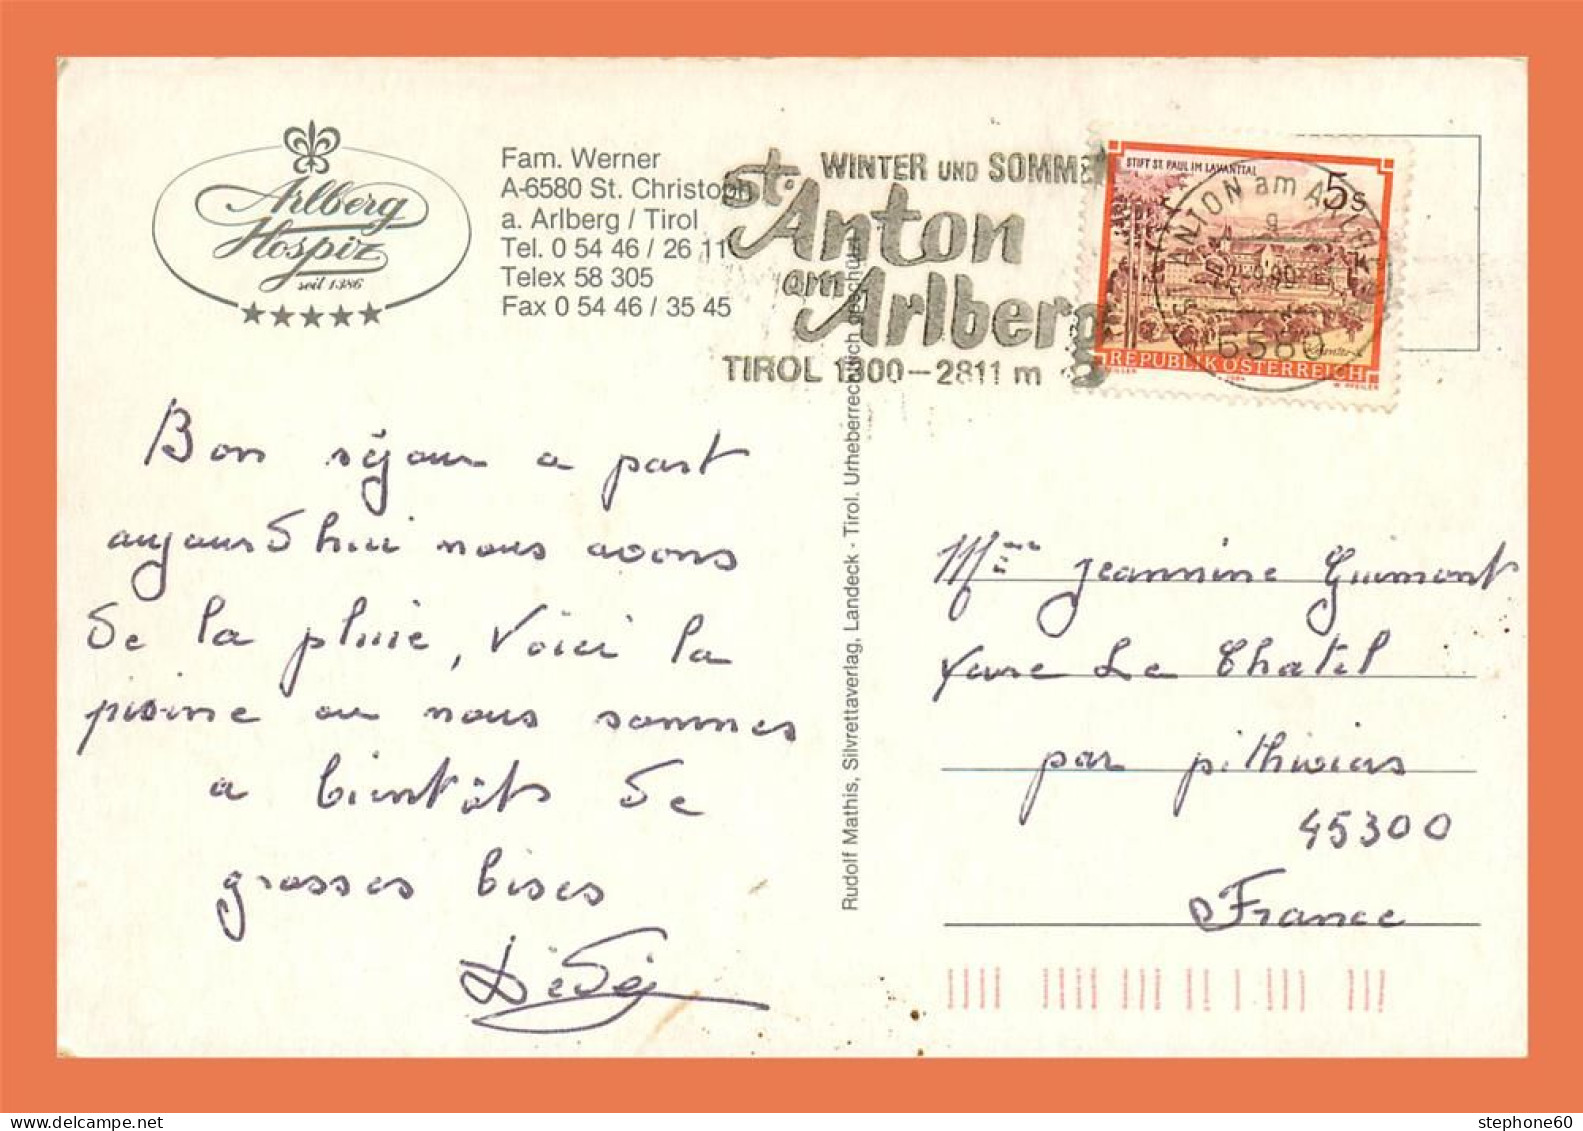 Arlberg
Hospiz
seit 1386
Fam. Werner
A-6580 St. Christoph
a. Arlberg / Tirol
Tel. 0 54 46 / 26 11
Telex 58 305
Fax 0 54 46 / 35 45
WINTER UND SOMME
St. Anton
am Arlberg
TIROL 1300-2811 m
STIFT ST. PAUL IM LAVANTTAL
5s
REPUBLIK ÖSTERREICH
ST. ANTON am ARLBERG
6580
Bon séjour a part
aujourd'hui nous avons
de la pluie, Voici la
piscine ou nous sommes
a bientôt de
grosses bises
Dédé
Rudolf Mathis, Silvrettaverlag, Landeck - Tirol. Urheberrechtlich geschützt
Mme Jeannine Guimont
Le Chatel
par pithiviers
45300
France
stephone60